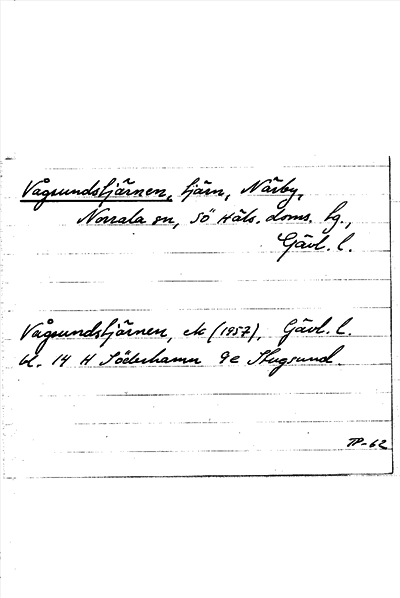 Vågsundstjärnen, tjärn, Närby,
Norrala sn, Sö Häls. doms. tg.,
Gävl. l.
Vågsundstjärnen, ek (1957), Gävl. l.
bl. 14 H Söderhamn 9e Stugsund.
TP-62